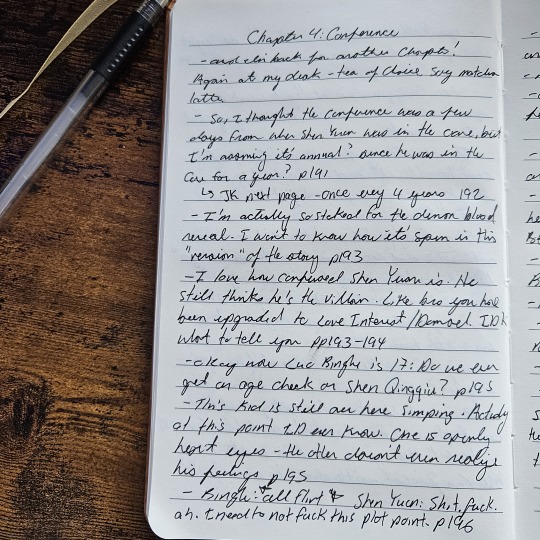 Chapter 4: Conference
- and I'm back for another Chapter!
Again at my desk - tea of choice soy matcha
latte
- So, I thought the conference was a few
days from when Shen Yuan was in the cave, but
I'm assuming it's annual? since he was in the
Cave for a year? p191
↳ JK next page - once every 4 years 192
- I'm actually so stoked for the demon blood
reveal. I want to know how it's spun in this
"version" of the story p193
- I love how confused Shen Yuan is. He
still thinks he's the villian. Like bro you have
been upgraded to Love Interest/Damsel. IDK
what to tell you pp193-194
- okay now Luo Binghe is 17: Do we ever
get an age check on Shen Qingqiu? p195
- This kid is still over here simping. Actually
at this point ID even know. One is openly
heart eyes - the other doesn't even realize
his feelings p195
- Binghe: all flirt Shen Yuan: Shit. fuck.
ah. I need to not fuck this plot point. p196